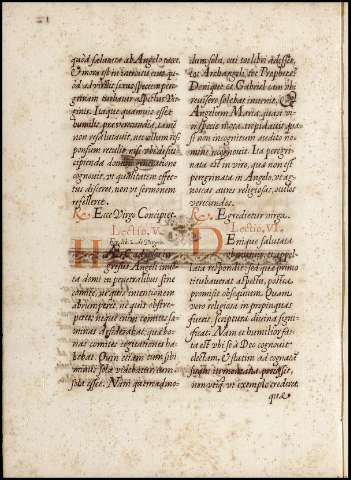 quòd salutata ab Angelo tacet.
Et mota est in introitu eius, quòd
ad virilis sexus speciem peregrinam
turbatur aspectus Virginis.
Itaque quamuis esset
humilis, præ verecundia, tamen
non resalutauit, nec ullum responsum
retulit, nisi ubi de suscipienda
domini generatione
cognouit, vt qualitatem effectus
disceret, non vt sermonem
refelleret.
Rs. Ecce Virgo Concipiet
Lectio. V.
Ex lib. 2. de Virginib.
Hæc ad ipsos ingressus
Angeli inuenta
domi in penetralibus sine
comite, ne quis intentionem
abrumperet, ne quis obstreperet;
neque enim comites fæminas
desiderabat, quæ bonas
comites cogitationes habebat.
Quin etiam tum sibi
minus sola videbatur, cum
sola esset. Nam quemadmodum
sola, cui tot libri adessent,
tot Archangeli, tot Prophetæ?
Denique et Gabriel eam vbi
reuisere solebat inuenit. Et
Angelum Maria, quasi viri
specie mota, trepidauit, quasi
non incognitum audito nomine,
recognouit. Ita peregrinata
est in viro, quæ non est
peregrinata in Angelo, vt agnoscas
aures religiosas, oculos
verecundos.
Rs. Egredietur virga.
Lectio. VI.
Denique salutata
obmutuit, et appellata
respondit: sed quæ primo
titubauerat affectu, postea
promisit obsequium. Quam
vero religiosa in propinquas
fuerit, scriptura diuina significat.
Nam et humilior facta
est vbi se à Deo cognouit
electam, Et statim ad cognatam
suam in montana processit,
non vtiq vt exemplo crederet,
quæ